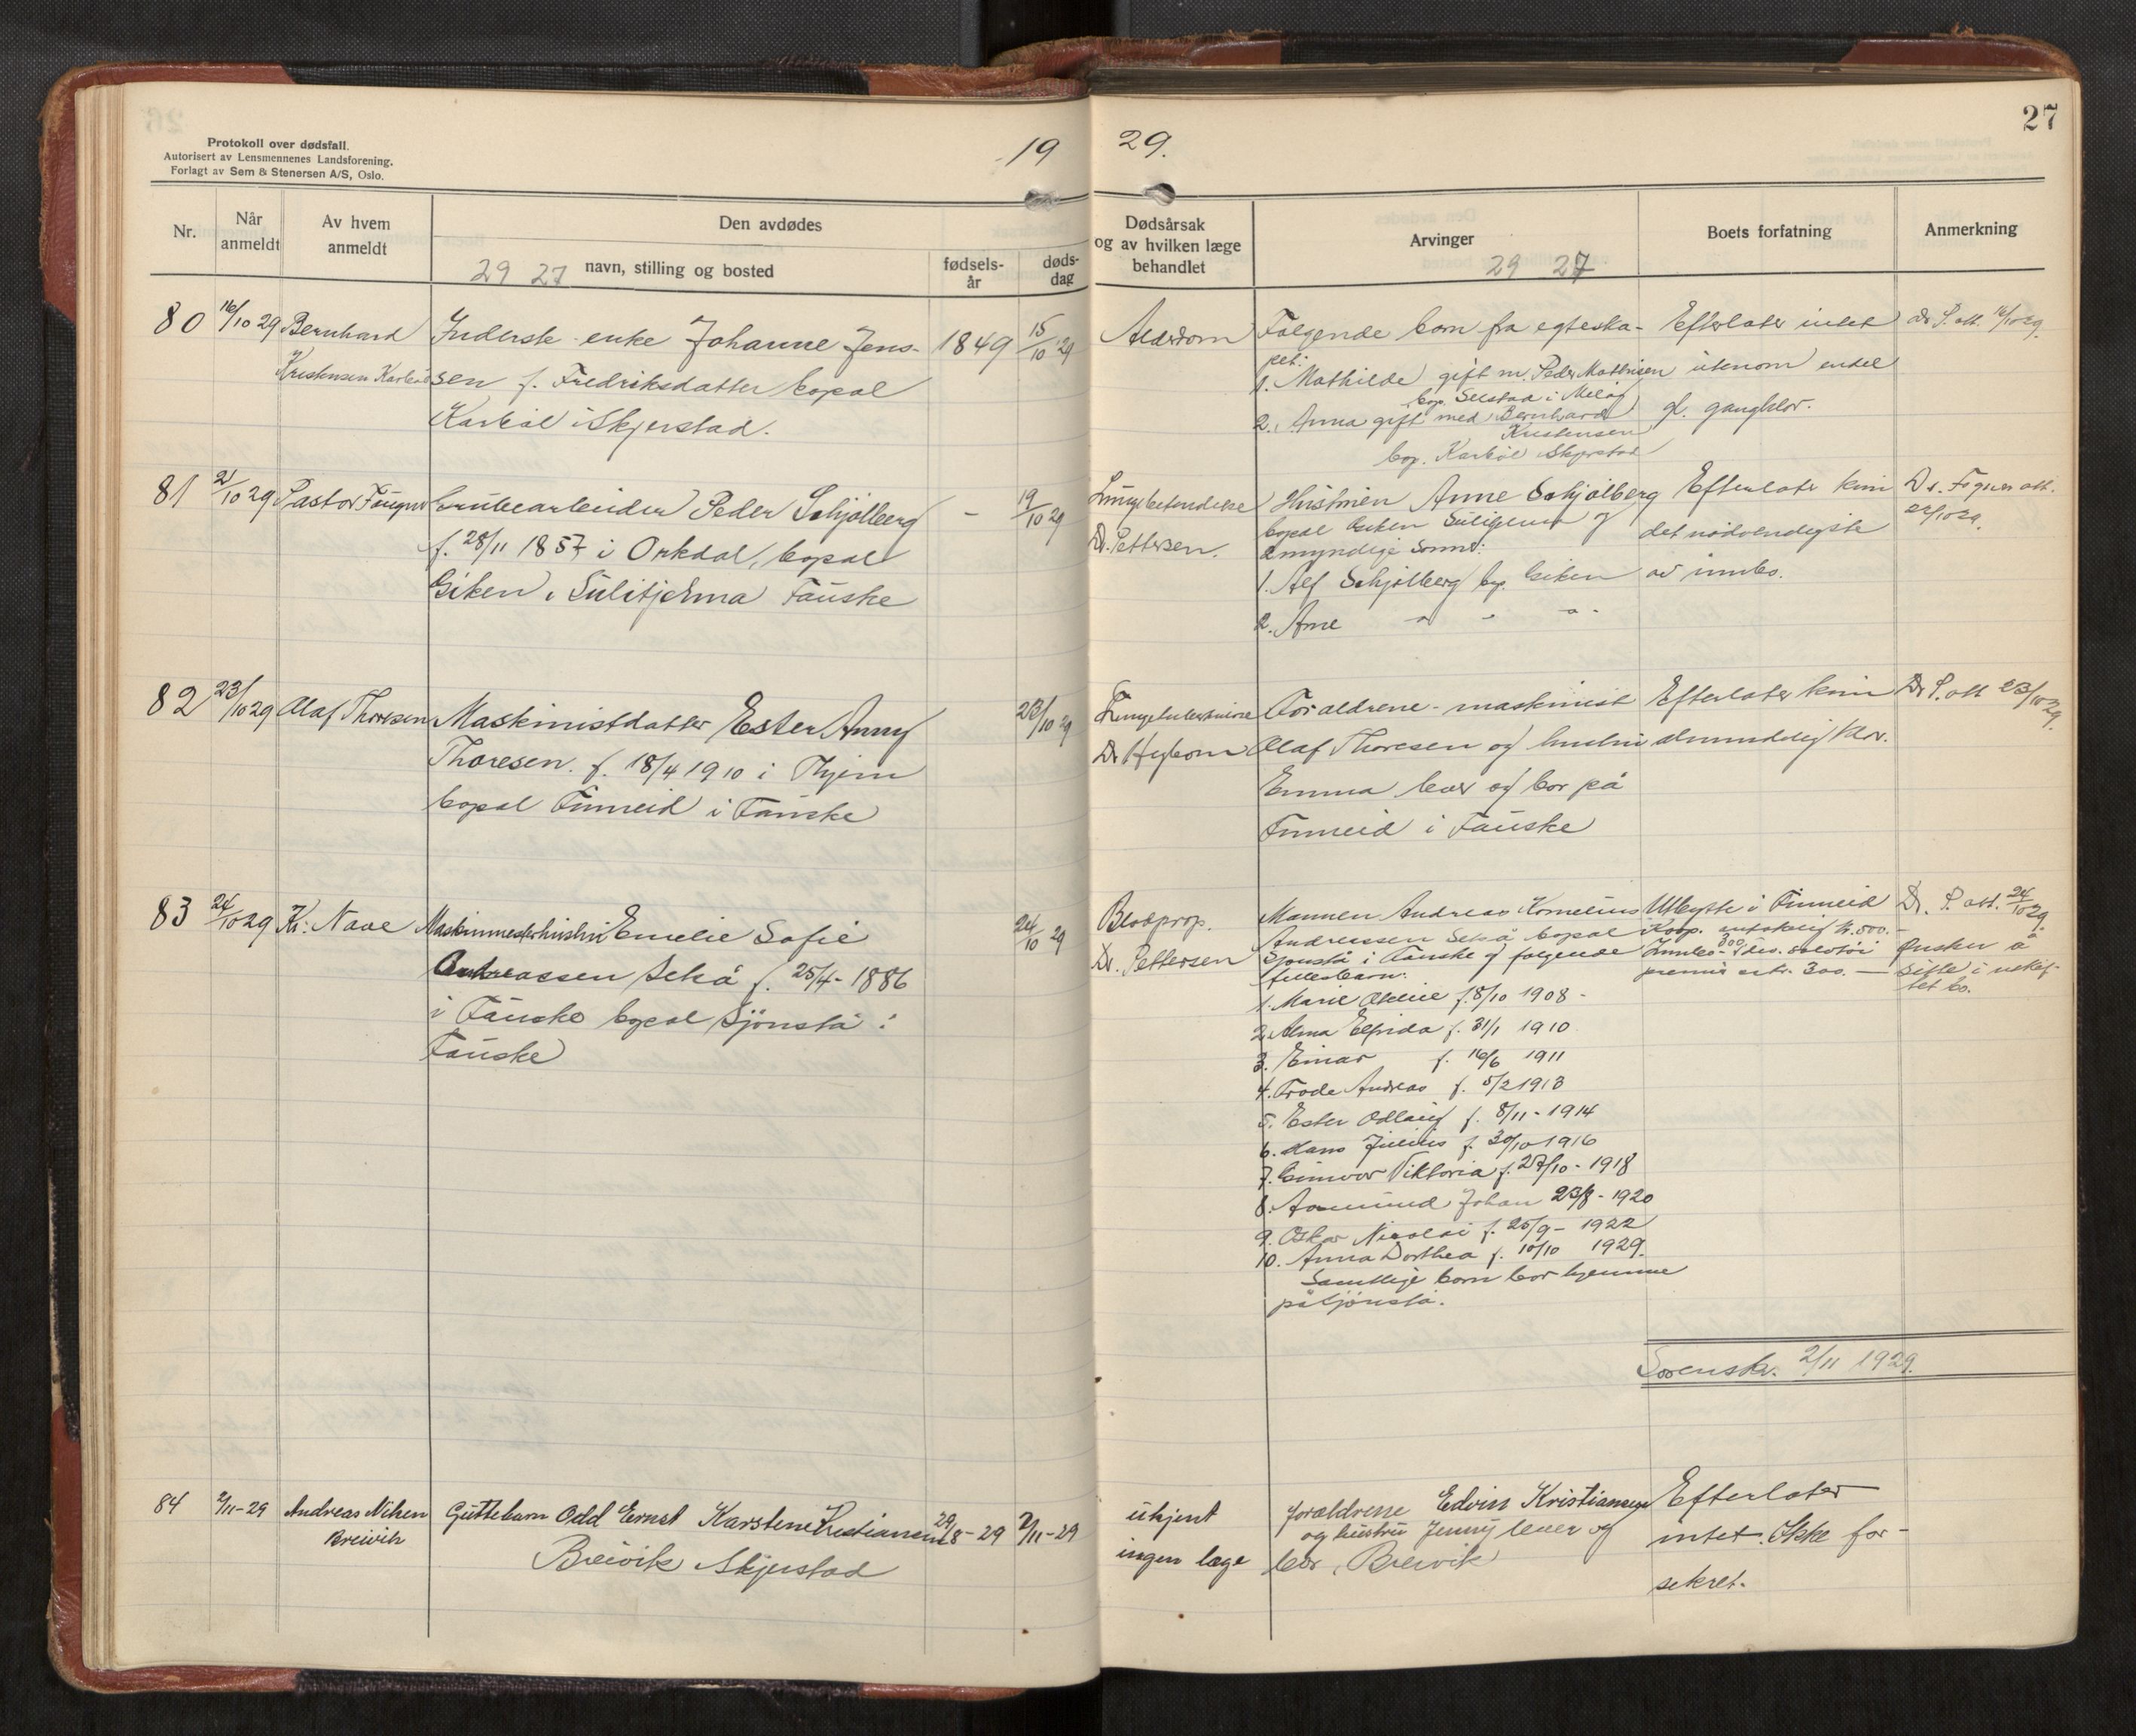 27
Protokoll over dødsfall.
Autorisert av Lensmennenes Landsforening.
Forlagt av Sem & Stenersen A/S, Oslo.
19 29.
Nr.
Når anmeldt
Av hvem anmeldt
Den avdødes
29 27 navn, stilling og bosted
fødsels-år
døds-dag
Dødsårsak og av hvilken læge behandlet
Arvinger
29 27
Boets forfatning
Anmerkning
80 16/10 29 Bernhard
Kristensen
Inderst enke Johanne Jens-
sen f. Fredriksdatter bopal
Karbøl i Skjerstad.
1849 15/10 29
Alderdom
Følgende barn fra egteska-
pet:
1. Mathilde gift m. Peder Mathisen
2. Anna gift med Bernhard
Kristensen
bop. Karbøl Skjerstad
Efterlater intet
utenom endel
gl. gangklær.
Dr. P. att. 16/10 29.
81 21/10 29 Pastor
Grubearbeider Peder Schjølberg
f. 28/11 1857 i Orkdal, bopal
Giken i Sulitjelma Fauske
- 19/10 29
Lungebetendelse
Dr. Pettersen.
Hustruen Anne Schjølberg
bopal Giken Sulitjelma og
2 myndige sønner:
1. Alf Schjølberg bop. Giken
2. Arne " " "
Efterlater kun
det nødvendigste
av innbo.
82 23/10 29 Olaf Thoresen
Maskinistdatter Ester Anny
Thoresen. f. 18/4 1910 i
bopal Finneid i Fauske
23/10 29
Lungetuberkulose
Foraldrene - maskinist
Olaf Thoresen og hustru
Emma lever og bor på
Finneid i Fauske
Efterlater kun
almindelig klær.
Dr. P. att 23/10 29.
83 24/10 29 Kr. Nave
Maskinmesterhustru Emelie Sofie
Andreassen Sekå f. 25/4 - 1886
i Fauske bopal Sjønstå i
Fauske
24/10 29
Blodprop.
Dr. Pettersen
Mannen Andreas Kornelius
Andreassen Sekå bopal
Sjønstå i Fauske og følgende
fellesbarn:
1. Marie f. 8/10 1908 -
2. Alma Elfrida f. 31/1 1910
3. Einar f. 16/6 1911
4. Frode Andreas f. 5/2 1913
5. Ester Odlaug f. 8/11 - 1914
6. Hans Julius f. 30/10 1916
7. Gunvor Viktoria f. 27/10 - 1918
8. Aamund Johan 23/8 - 1920
9. Oskar Nicolai f. 25/9 - 1922
10. Anna Dorthea f. 10/10 1929.
Samtlige barn bor hjemme
på Sjønstå.
Utbytte i Finneid
Koop. kr. 500. -
300. -
Dr. P. att. 24/10 29.
Ønsker å
sitte i uskif-
tet bo.
Sorensk. 2/11 1929.
84 2/11 - 29 Andreas Nilsen
Breivik
Guttebarn Odd Ernst Karsten Kristiansen
Breivik Skjerstad
29/8 - 29 2/11 - 29
ukjent
ingen læge
foraldrene Edvin Kristiansen
og hustru Jenny lever og
bor, Breivik
Efterlater
intet. Ikke for-
sikret.